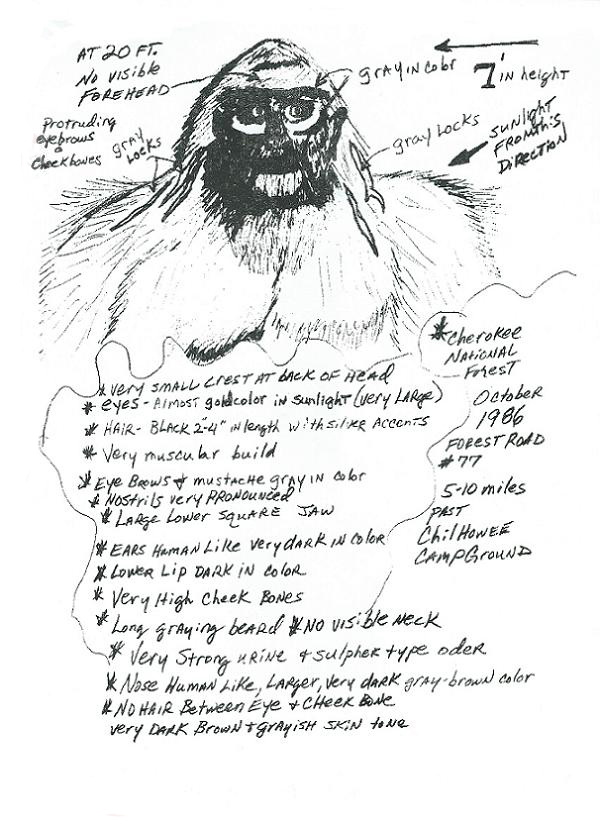 AT 20 FT.
NO VISIBLE
FOREHEAD
GRAY IN COLOR
7' IN height
Protruding
eyebrows
&
Cheekbones
gray
LOCKS
gray LOCKS
SUNLIGHT
FROM THIS
DIRECTION
* Cherokee
NATIONAL
Forest
October
1986
FOREST ROAD
#77
5-10 miles
PAST
ChilHOWEE
CAMPGROUND
* Very SMALL CREST AT BACK OF HEAD
* eyes - Almost goldcolor in sunlight (very LARGE)
* HAIR - BLACK 2"-4" IN length WITH SILVER ACCENTS
* Very muscular build
* Eye Brows & mustache gray in color
* NOSTRILS very PRONOUNCED
* LARGE LOWER SQUARE JAW
* EARS HUMAN LIKE Very DARK IN COLOR
* LOWER LIP DARK IN COLOR
* Very High Cheek Bones
* Long graying beard * NO VISIBLE NECK
* Very Strong URINE & SULPHER type oder
* Nose HUMAN LIKE, LARGER, very dark gray-brown color
* NO HAIR Between Eye & CHEEK BONE
very DARK BROWN & grAyISH SKIN tone